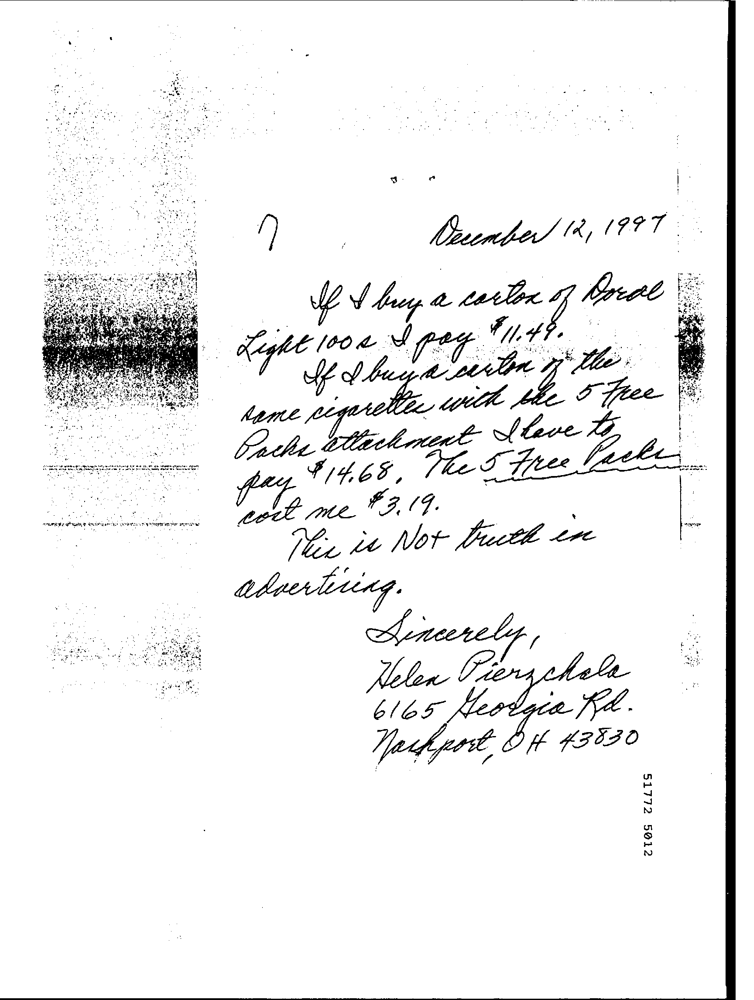 December 12, 1997
If I buy a carton of Doral
Light 100s I pay $11.49.
If I buy a carton of the
same cigarettes with the 5 Free
Packs attachment I have to
pay $14.68. The 5 Free Packs
cost me $3.19.
This is Not truth in
advertising.
Sincerely,
Helen Pierzchala
6165 Georgia Rd.
Nashport, OH 43830
51772 5012